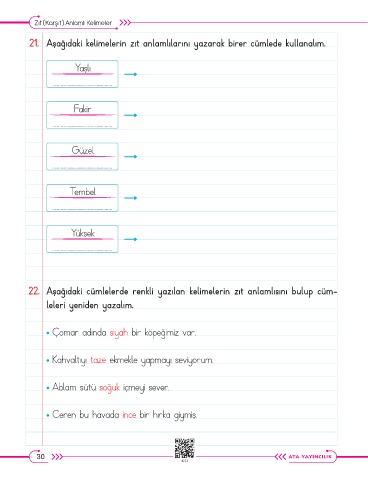 Zıt (Karşıt) Anlamlı Kelimeler
21. Aşağıdaki kelimelerin zıt anlamlılarını yazarak birer cümlede kullanalım.
Yaşlı
Fakir
Güzel
Tembel
Yüksek
22. Aşağıdaki cümlelerde renkli yazılan kelimelerin zıt anlamlısını bulup cüm-
leleri yeniden yazalım.
• Çomar adında siyah bir köpeğimiz var.
• Kahvaltıyı taze ekmekle yapmayı seviyorum.
• Ablam sütü soğuk içmeyi sever.
• Ceren bu havada ince bir hırka giymiş.
30
ATA YAYINCILIK